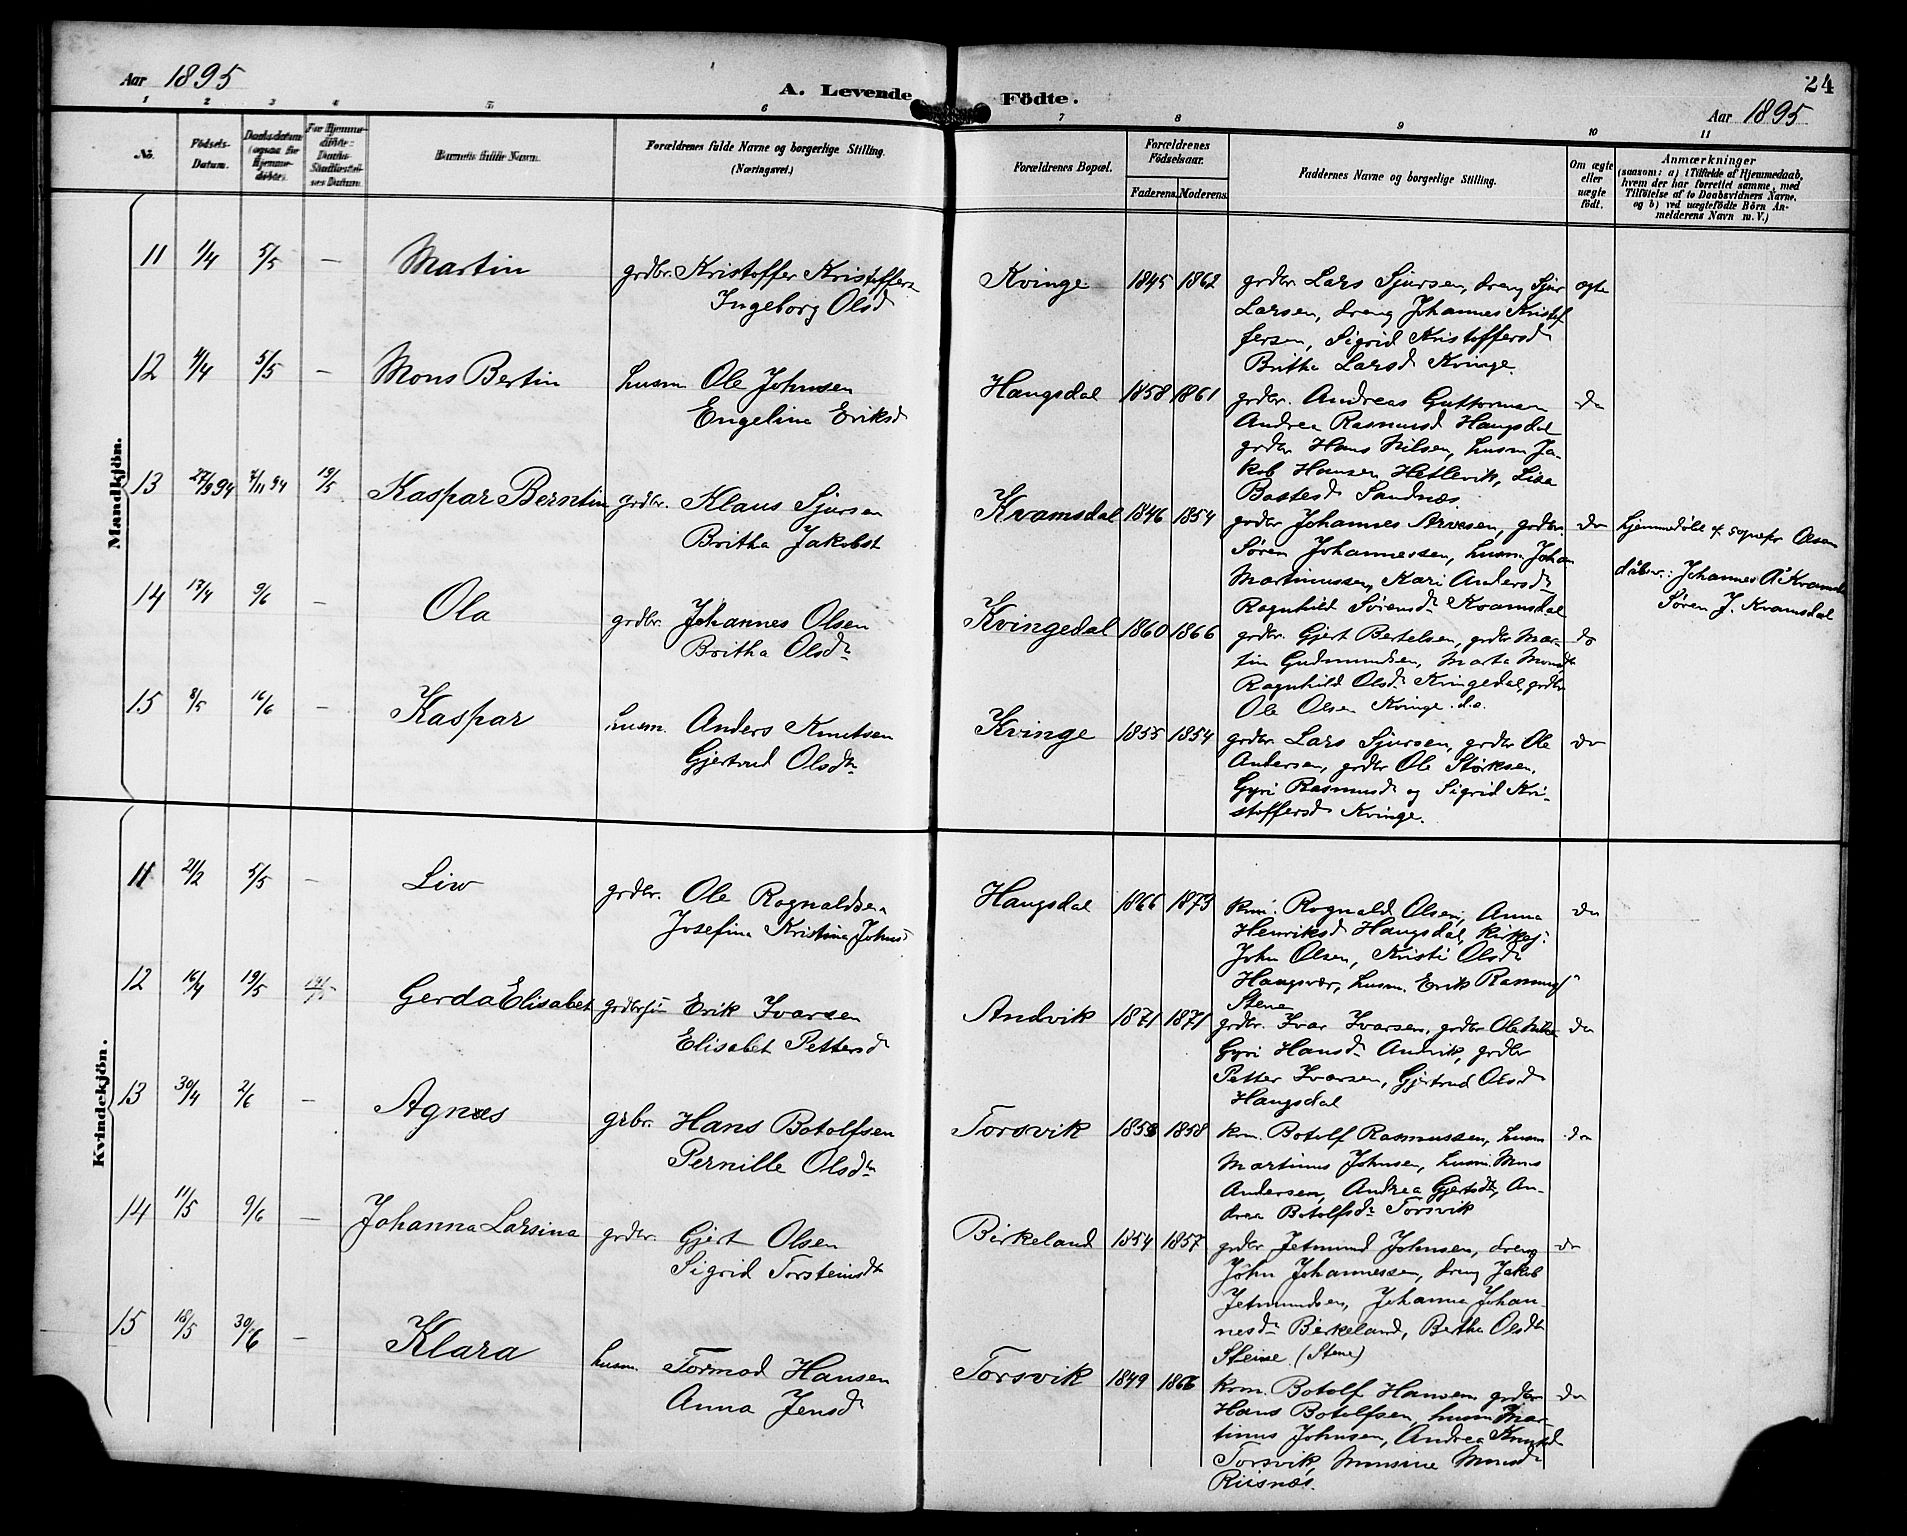 Aar 1895
A. Levende Födte.
24
Aar 1895
1 2 3 4 5 6 7 8 9 10 11
No.
Födsels-Datum.
Daabsdatum (ogsaa for Hjemmedöbte).
For Hjemmedöbte: Daabs Stadfæstelses Datum.
Barnets fulde Navn.
Forældrenes fulde Navne og borgerlige Stilling.
(Næringsvei.)
Forældrenes Bopæl.
Forældrenes Födselsaar.
Faderens. Moderens.
Faddernes Navne og borgerlige Stilling.
Om ægte eller uægte födt.
Anmærkninger
(saasom: a) i Tilfælde af Hjemmedaab,
hvem der har forrettet samme, med
Tilföielse af to Daabsvidners Navne,
og b) ved uægtefödte Börn An-
melderens Navn m. V.)
Mandkjön.
11 1/4 5/5 — Martin
grdbr. Kristoffer Kristoffersn
Ingeborg Olsd
Kvinge 1845 1862
grdbr Lars Sjursen, dreng Sjur
Larsen, dreng Johannes Kristof
fersen, Sigrid Kristoffersd
Britha Larsd Kvinge.
ægte
12 4/4 5/5 — Mons Bertin
husm Ole Johnsen
Engelina Eriksd
Haugsdal 1858 1861
grdbr. Andreas Guttormsen
Andrea Rasmusd Haugsdal
grdbr Hans Nilsen, husm Ja-
kob Hansen Hetlevik, Lisa
Bastesd Sandnæs.
do
13 27/9 94 7/11 94 19/5 Kaspar Berntin
grdbr. Klaus Sjursen
Britha Jakobsd
Kvamsdal 1846 1854
grdbr Johannes Arvesen, grdbr.
Søren Johannessen, husm Johan
Martinussen, Kari Andersd
Ragnhild Sørensd Kvamsdal
do
hjemmedöbt af sognepr Olsen
dåbsv.: Johannes A. Kvamsdal
Søren J. Kvamsdal
14 17/4 9/6 — Ola
grdbr. Johannes Olsen
Britha Olsdr
Kvingedal 1860 1866
grdbr. Gjert Bertelsen, grdbr Mar-
tin Gudmundsen, Marta Monsdr
Ragnhild Olsdr Kvingedal, grdbr
Ole Olsen Kvinge
do
15 8/5 16/6 — Kaspar
husm. Anders Knutsen
Gjertrud Olsdr
Kvinge 1855 1854
grdbr. Lars Sjursen, grdbr Ole
Andersen, grdbr Ole Størksen,
Gyri Rasmusd og Sigrid Kri-
stoffersd Kvinge.
do
Kvindekjön.
11 21/2 5/5 — Liv
grdbr. Ole Rognaldsen
Josefina Kristina Johnsd
Haugsdal 1866 1873
km. Rognald Olsen, Anna
Henriksd Haugsdal, kirkesj:
John Olsen, Kristi Olsdr
husm. Erik Rasmus
Stene
do
12 16/4 19/5 19/5 Gerda Elisabet
Erik Ivarsen
Elisabet Pettersd
Andvik 1871 1871
grdbr. Ivar Ivarsen, grdbr Ole Nilsen
Gyri Hansdr Andvik, grdbr
Petter Ivarsen, Gjertrud Olsd
Haugsdal
do
13 30/4 2/6 — Agnes
grbr. Hans Botolfsen
Pernille Olsdr
Torsvik 1853 1858
krm. Botolf Rasmussen, husm
Martinus Johnsen, husm. Mons
Andersen, Andrea Gjertsdr, An-
drea Botolfsdr Torsvik
do
14 11/5 9/6 — Johanna Larsina
grdbr. Gjert Olsen
Sigrid Torsteinsdr
Birkeland 1854 1857
grdbr Jetmund Johnsen, dreng
John Johannessen, dreng Jakob
Jetmundsen, Johanna Johan-
nesdr Birkeland, Bertha Olsdr
Steine (Stene)
do
15 18/5 30/6 — Klara
husm. Tormod Hansen
Anna Jensd
Torsvik 1849 1866
krm. Botolf Hansen grdbr
Hans Botolfsen, husm Mar-
tinus Johnsen, Andrea Knutsd
Torsvik, Monsine Monsdr
Riisnæs.
do